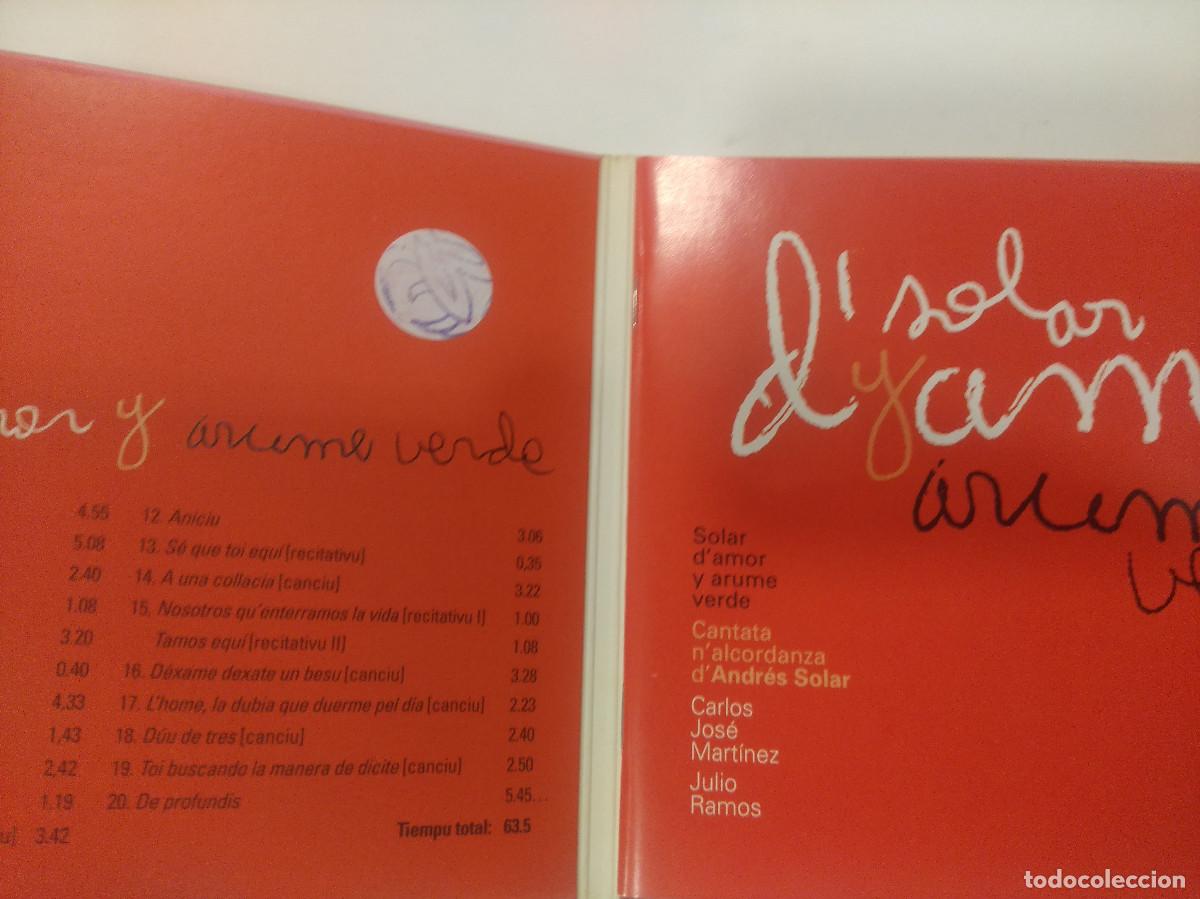 y arume verde
4.55 12. Aniciu 3.06
5.08 13. Sé que toi equí [recitativu] 0,35
2.40 14. A una collacia [canciu] 3.22
1.08 15. Nosotros qu'enterramos la vida [recitativu I] 1.00
3.20 Tamos equí [recitativu II] 1.08
0.40 16. Déxame dexate un besu [canciu] 3.28
4,33 17. L'home, la dubia que duerme pel día [canciu] 2.23
1,43 18. Dúu de tres [canciu] 2.40
2,42 19. Toi buscando la manera de dicite [canciu] 2.50
1.19 20. De profundis 5.45...
3.42
Tiempu total: 63.5
solar
d'am
y
árum
ve
Solar
d'amor
y arume
verde
Cantata
n'alcordanza
d'Andrés Solar
Carlos
José
Martínez
Julio
Ramos
todocoleccion